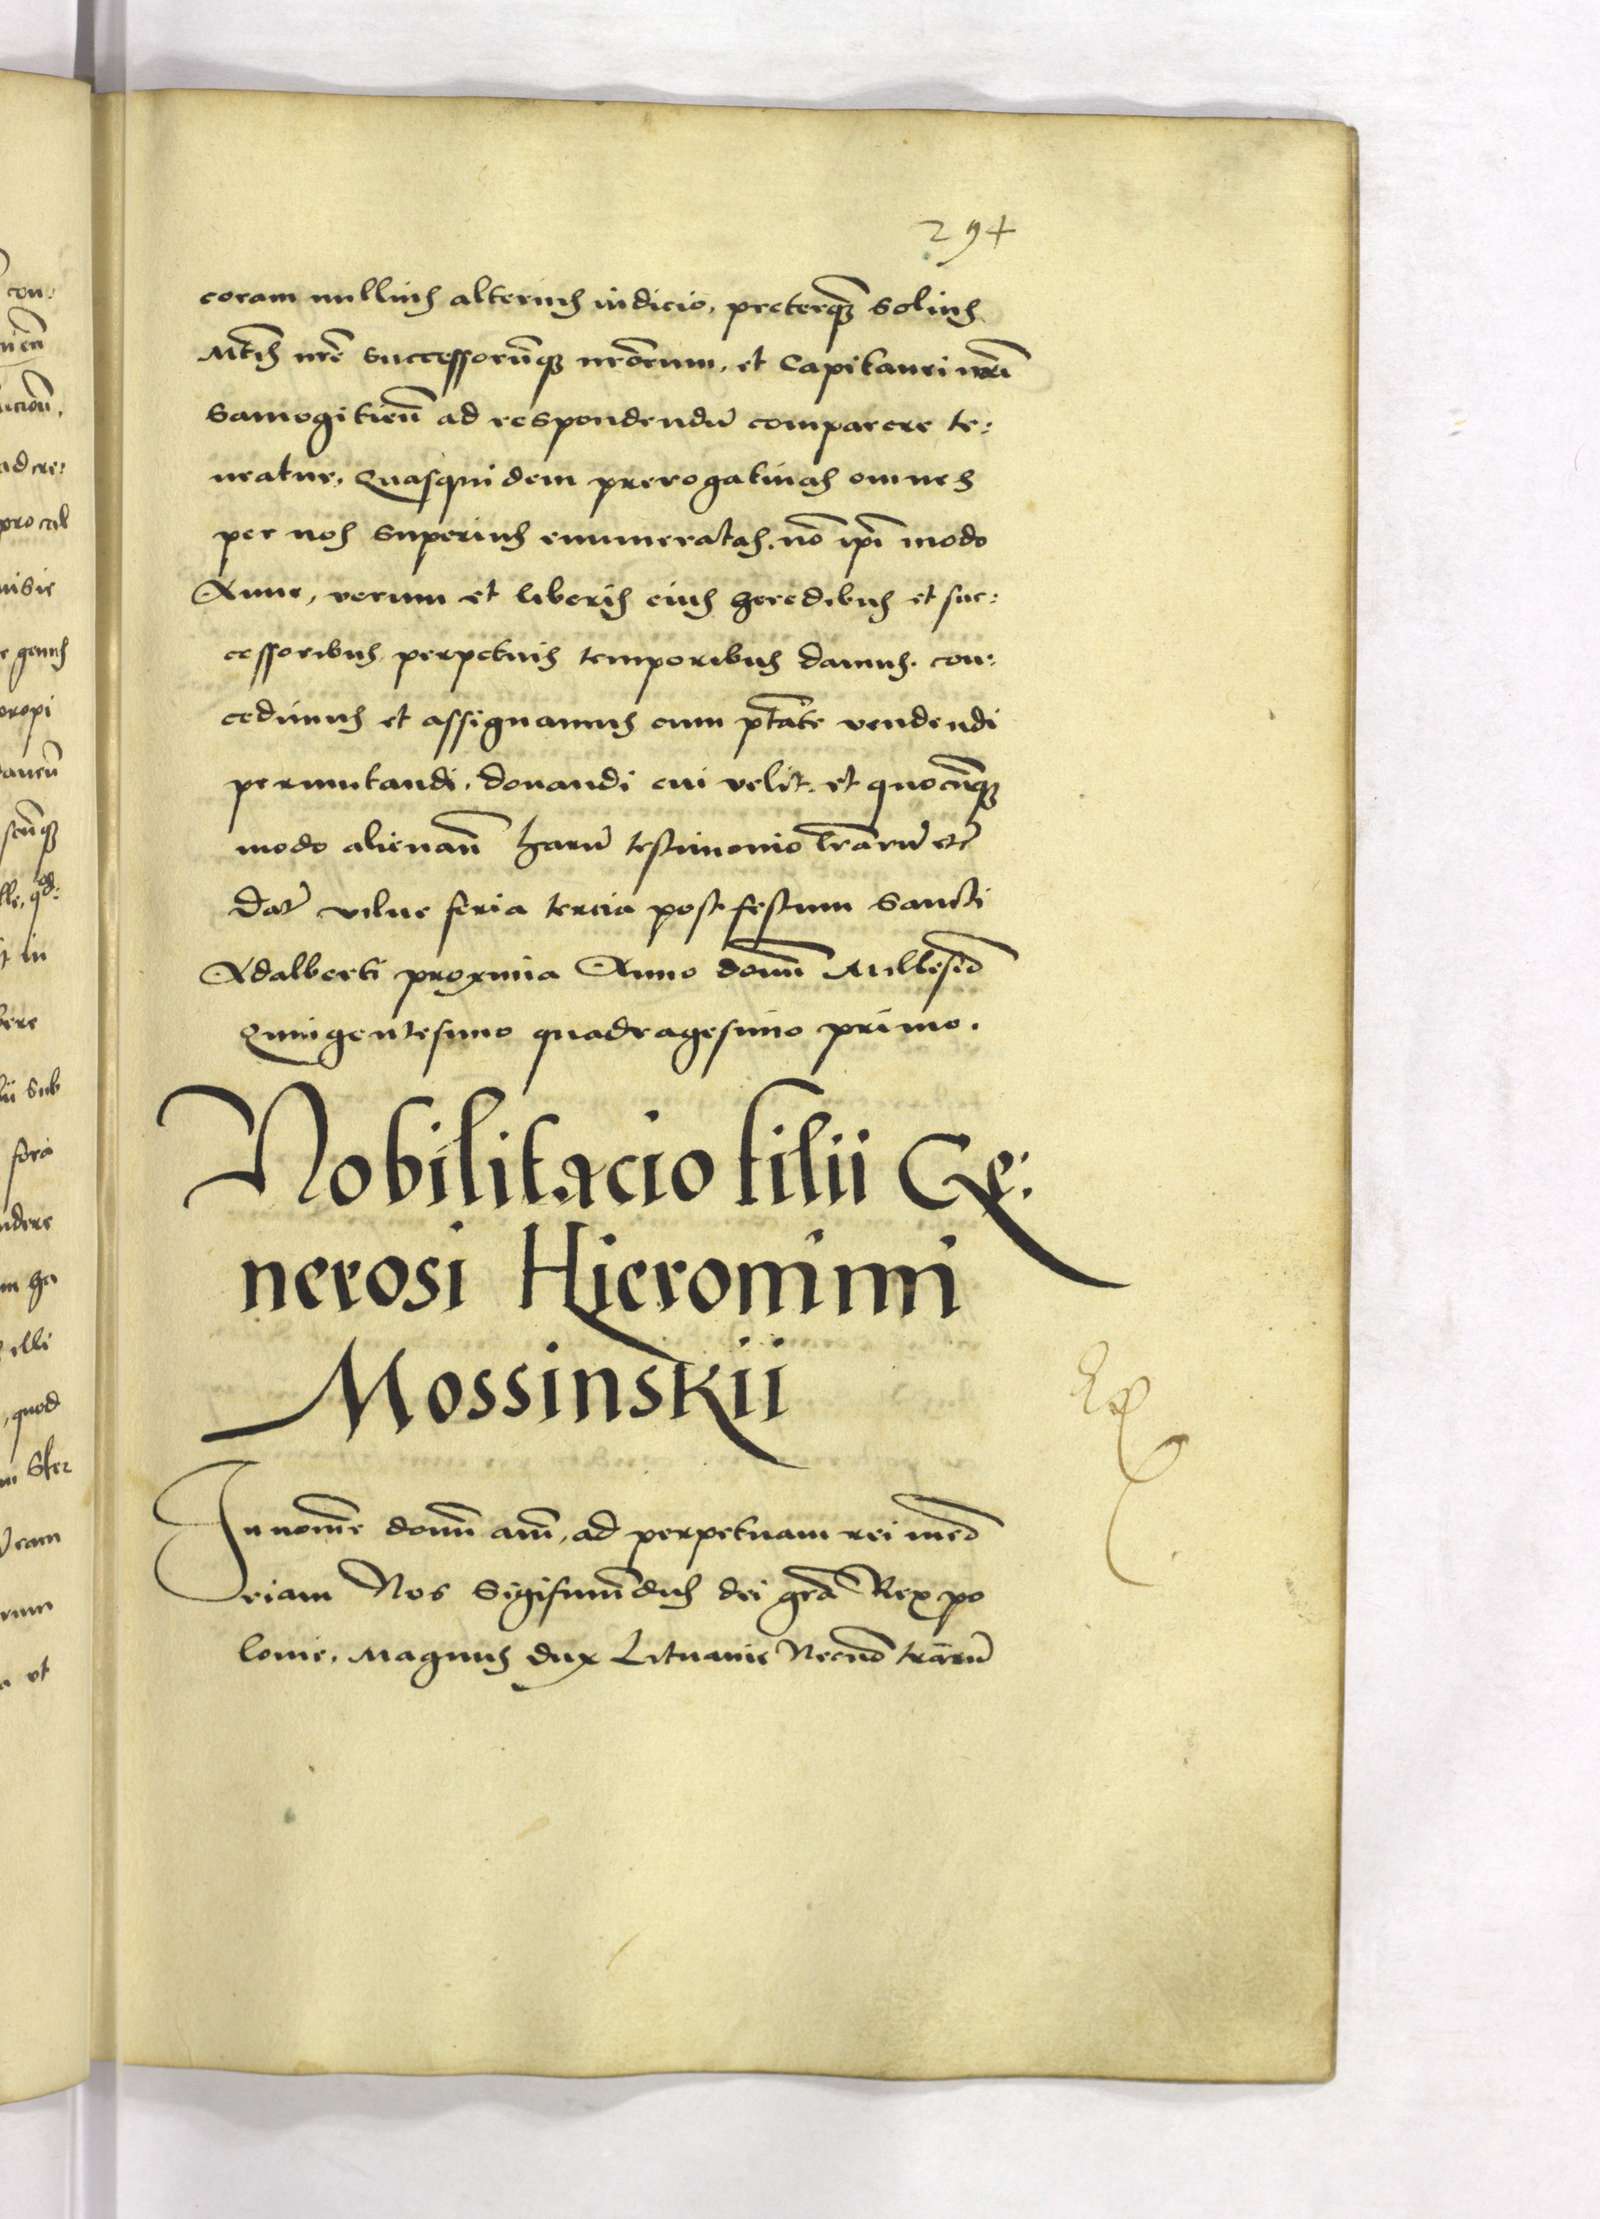 294
coram nullius alterius iudicio, preterq̃ȝ solius
Mtis nr̃e successorũqȝ nr̃orum, et Capitanei nr̃i
Samogitien̄ ad respondendũ comparere te:
neatur, Quasquidem prerogatiuas omnes
per nos superius enumeratas, nõ ip̃i modo
Anne, verum et liberis eius heredibus et suc:
cessoribus perpetuis temporibus damus, con:
cedimus et assignamus cum p̃tãte vendendi
permutandi, donandi cui velit, et quocũqȝ
modo alienan̄ harũ testimonio lr̃arũ etc̃
Dat̃ vilne feria tercia post festum Sancti
Adalberti proxima Anno domĩ Millesiõ
Quingentesimo quadragesimo primo.
Nobilitacio filii Ge:
nerosi Hieronimi
Mossinskii
In nomĩe domĩ am̃, ad perpetuam rei meõ
riam Nos Sigismũdus dei grã Rex po
lonie, Magnus dux Lituanie Necnõ trãrũ